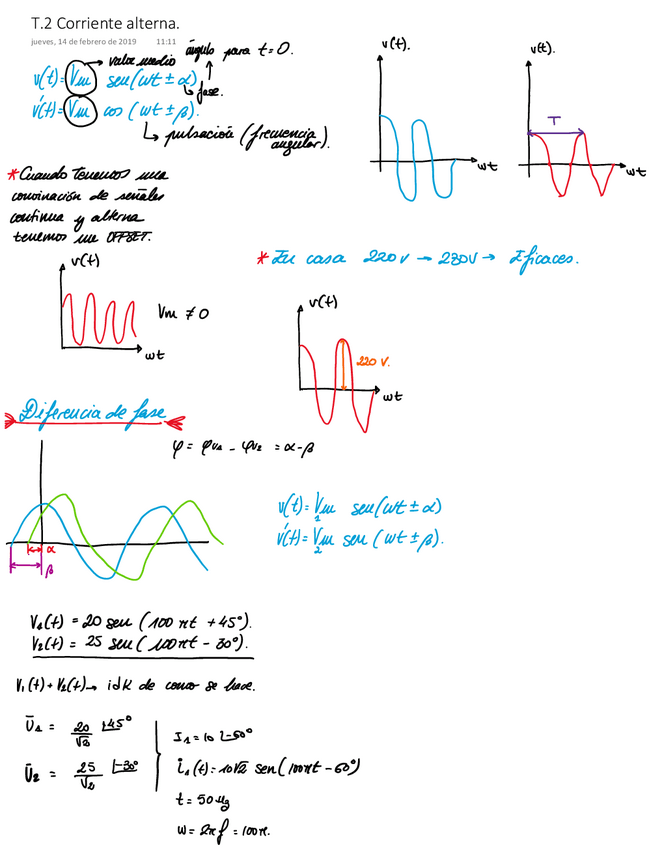 T.2 Corriente alterna.
jueves, 14 de febrero de 2019 11:11
valor medio
ángulo para t=0.
v(t)=Vm sen(wt ± α)
fase.
v'(t)=Vm cos (wt ± β).
pulsación (frecuencia
angular).
v(t).
wt
v(t).
T
wt
*Cuando tenemos una
convinación de señales
continua y alterna
tenemos un OFFSET.
v(t)
Vm ≠ 0
wt
* En casa 220v → 230v → Eficaces.
v(t)
220 v.
wt
Diferencia de fase
φ = φv1 - φv2 = α-β
α
β
v(t)=Vm1 sen(wt ± α)
v'(t)=Vm2 sen (wt ± β).
V1(t) = 20 sen (100πt +45°).
V2(t) = 25 sen (100πt - 30°).
V1(t) + V2(t) → idk de como se hace.
Ū1 = 20/√2 ∟45°
Ū2 = 25/√2 ∟-30°
I1 = 10 ∟-60°
i1(t) = 10√2 sen(100πt - 60°)
t = 50Hz
w = 2πf = 100π.